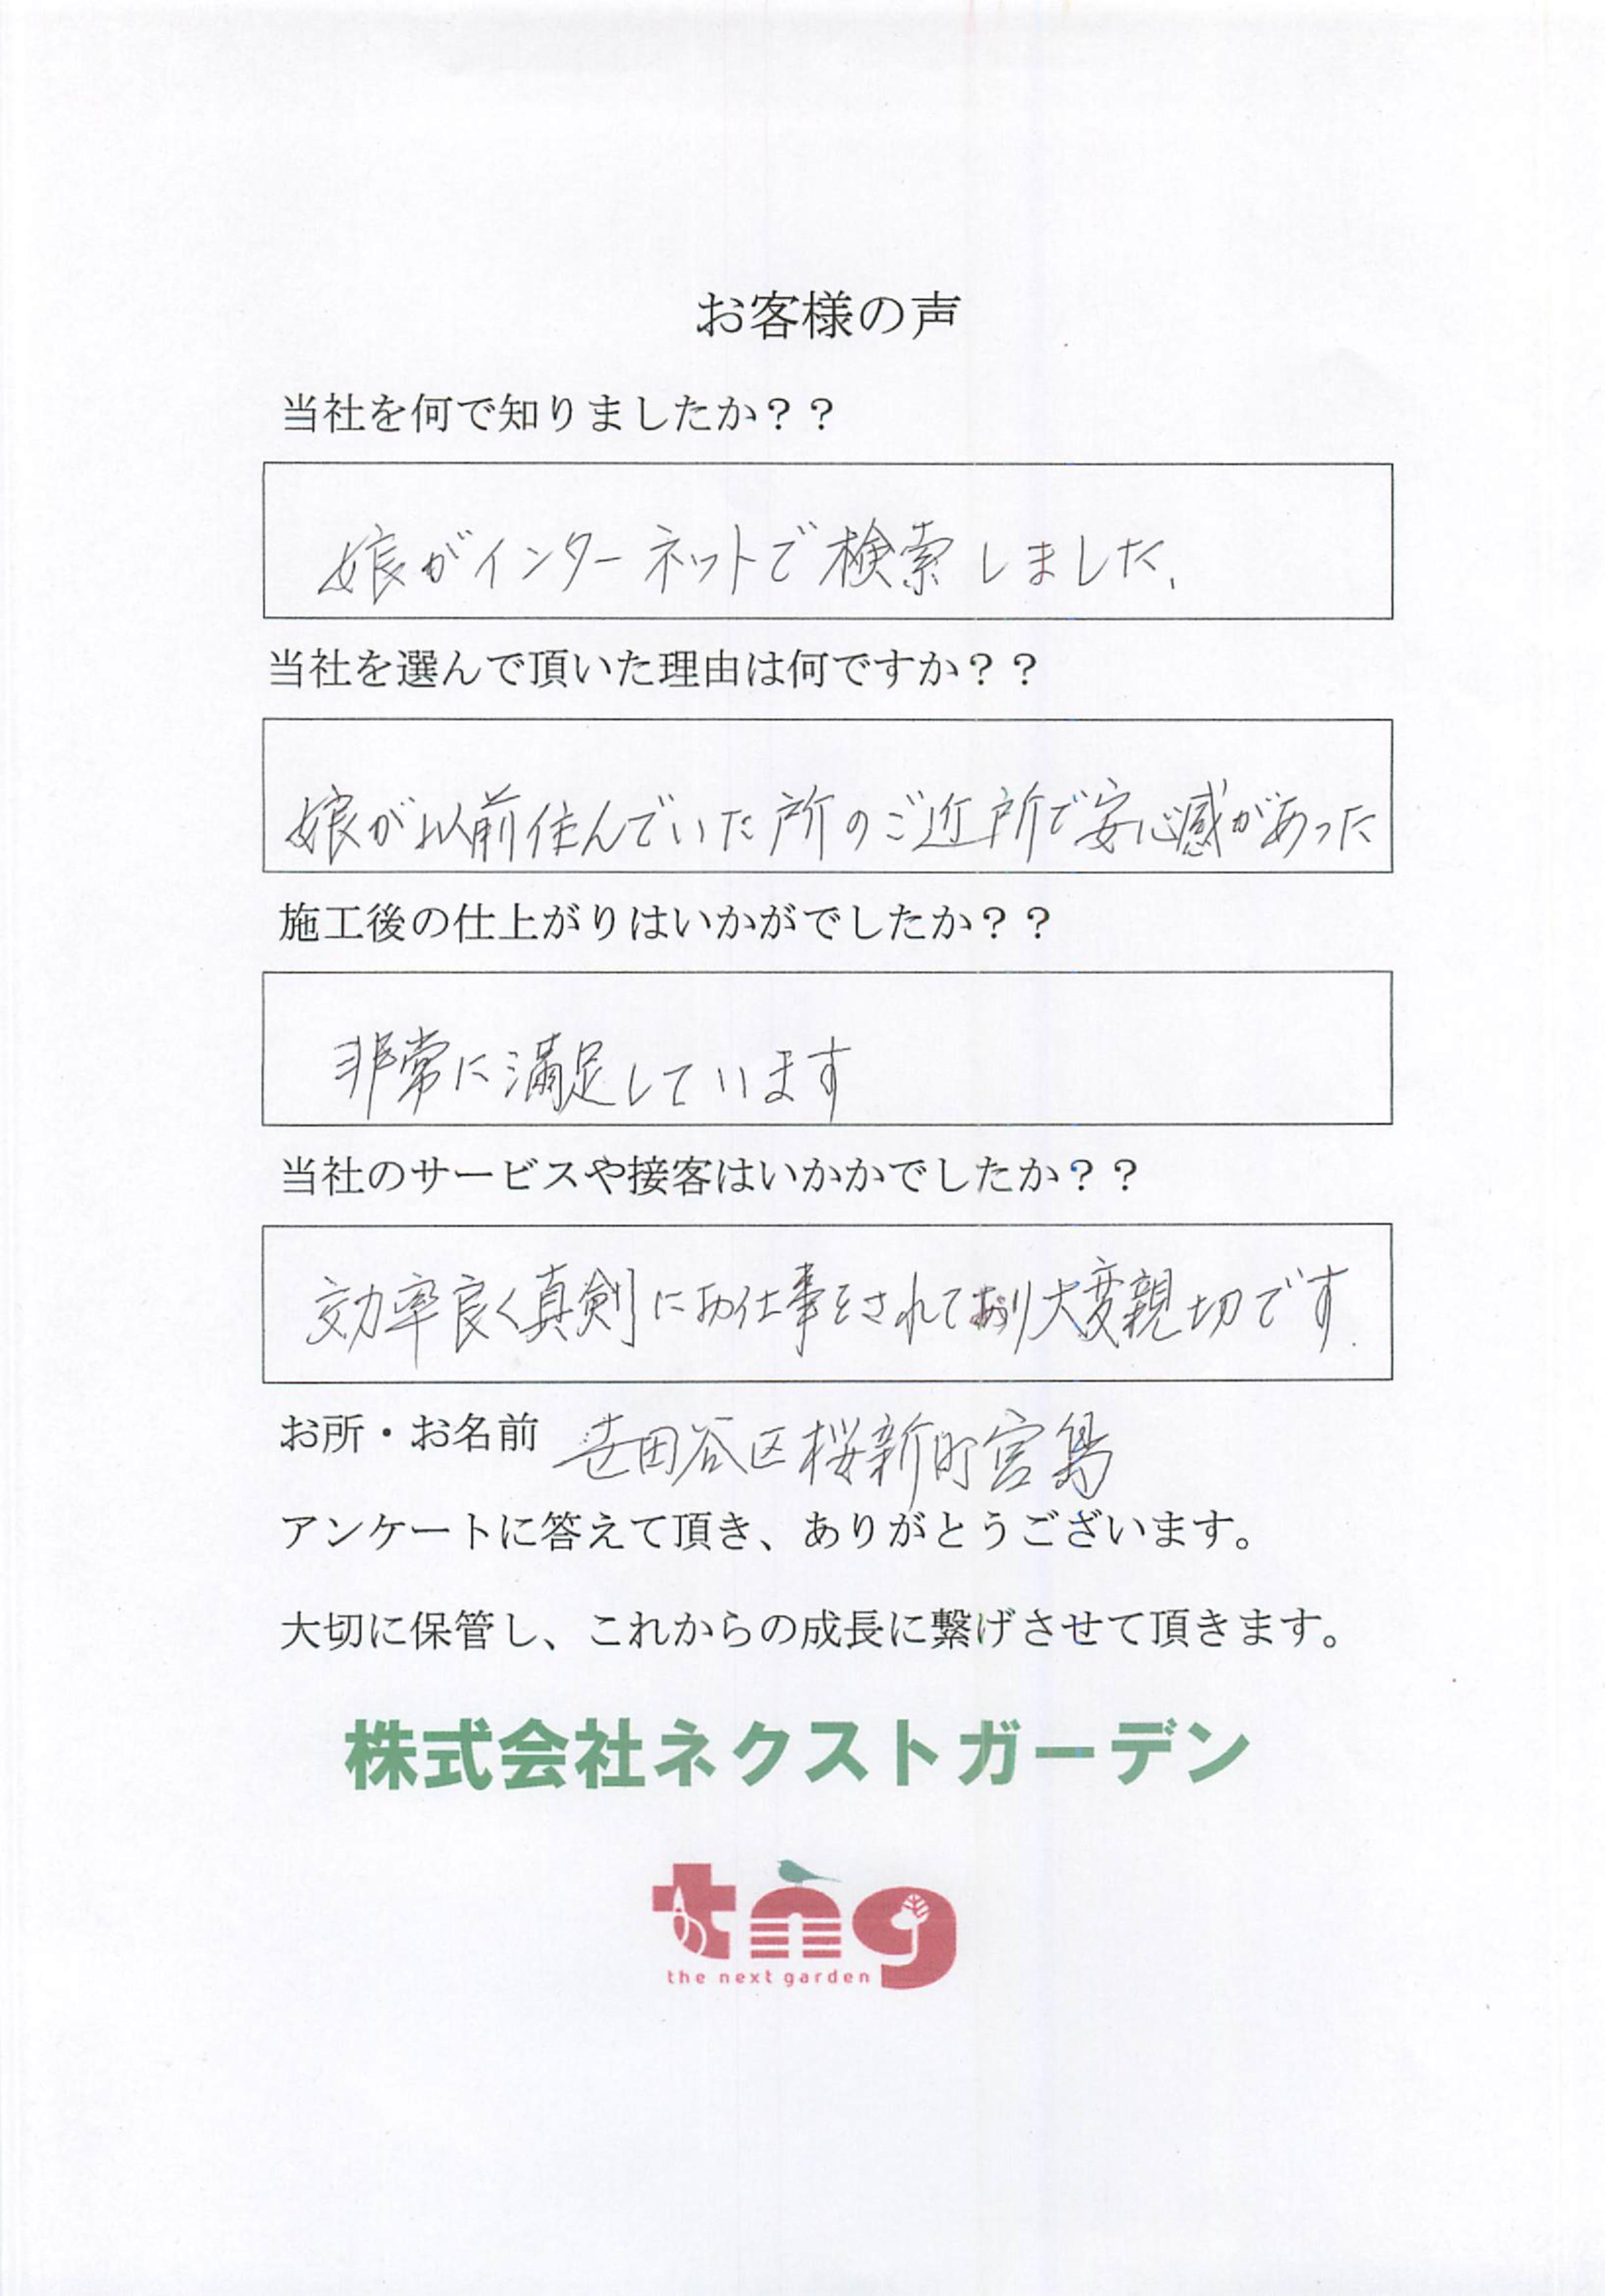 お客様の声
当社を何で知りましたか？？
娘がインターネットで検索しました、
当社を選んで頂いた理由は何ですか？？
娘が以前住んでいた所のご近所で安心感があった
施工後の仕上がりはいかがでしたか？？
非常に満足しています
当社のサービスや接客はいかかでしたか？？
効率良く真剣にお仕事をされており大変親切です.
お所・お名前 世田谷区桜新町宮島
アンケートに答えて頂き、ありがとうございます。
大切に保管し、これからの成長に繋げさせて頂きます。
株式会社ネクストガーデン
tng
the next garden